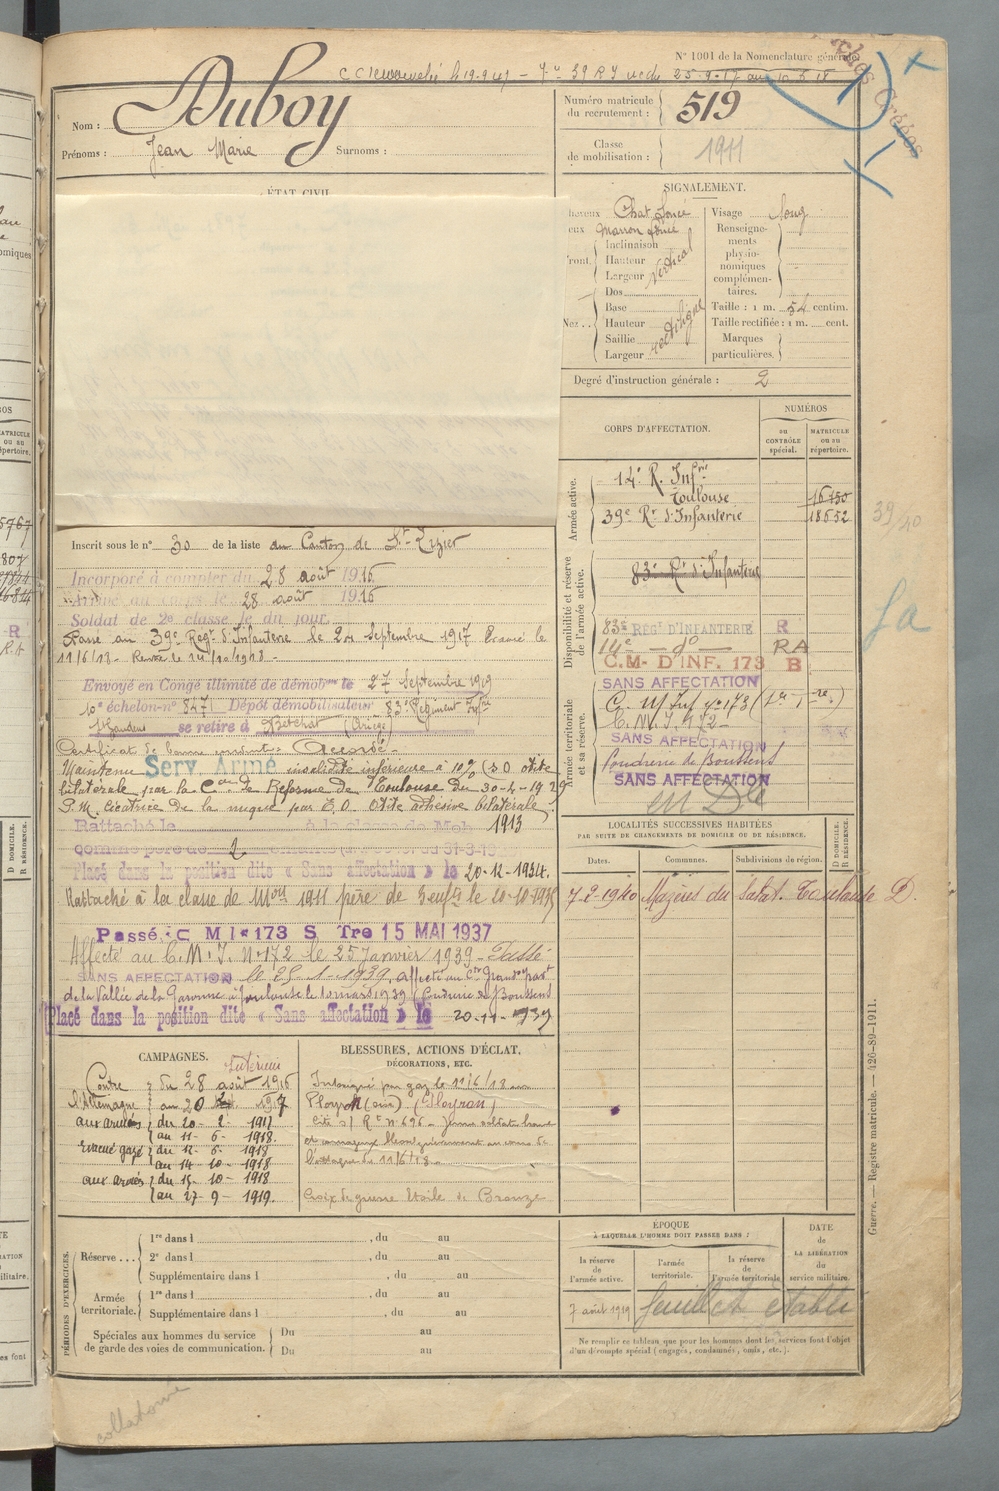 N° 1001 de la Nomenclature générale
C C renouvelée le 19-9-41 - 39 R I 25-9-17 au
Nom : Duboy
Prénoms : Jean Marie Surnoms :
Numéro matricule du recrutement : 519
Classe de mobilisation : 1911
ÉTAT CIVIL
SIGNALEMENT.
Chat foncé
Marron foncé
Inclinaison
Hauteur
Largeur
vertical
Dos
Base
Nez . . Hauteur
Saillie
Largeur
rectiligne
Visage long
Renseigne-
ments
physio-
nomiques
complémen-
taires.
Taille : 1 m. 54 centim.
Taille rectifiée : 1 m. cent.
Marques
particulières.
Degré d'instruction générale : 2
CORPS D'AFFECTATION.
NUMÉROS
au CONTRÔLE spécial.
MATRICULE ou au répertoire.
Armée active.
14e R. Infrie
Toulouse 16150
39e Rt d'Infanterie 18652
Disponibilité et réserve de l'armée active.
83e Rt d'Infanterie
83e RÉGt D'INFANTERIE R
14e — do — RA
C.M. D'INF. 173 B
SANS AFFECTATION
Armée territoriale et sa réserve.
C. M. Inf no 173
C. M. I. 172
SANS AFFECTATION
Fondrerie de Boussens
SANS AFFECTATION
39 40
Inscrit sous le n° 30 de la liste du Canton de St-Lizier
Incorporé à compter du 28 août 1916
Arrivé au corps le 28 août 1916
Soldat de 2e classe le dit jour.
Passé au 39e Régt d'Infanterie le 24 Septembre 1917 Evacué le
11/6/18 - Rentré le 14/10/1918 -
Envoyé en Congé illimité de démobon le 27 Septembre 1919
10e échelon n° 8471 Dépôt démobilisateur 83e Régiment Infrie
St Gaudens se retire à Betchat (Ariège)
Certificat de bonne conduite Accordé -
Maintenu Serv. Armé invalidité inférieure à 10% (s.o otite
bilatérale par la Con de Réforme de Toulouse du 30-4-1929
P.M. cicatrice de la nuque par E.O. Otite adhésive bilatérale
Rattaché le à la classe de Mob 1913
comme père de 2 enfants
Placé dans la position dite « Sans affectation » le 20-12-1934.
Rattaché à la classe de Mon 1911 père de 3 enfts le 20-10-1935
Passé C M I 173 S Tre 15 MAI 1937
Affecté au C. M. I. N° 172 le 25 Janvier 1939 - Passé
SANS AFFECTATION le 25-1-1939. Affecté au
de la Vallée de la Garonne à Toulouse le 10 mars 1939 (Fonderie de Boussens
Placé dans la position dite « Sans affectation » le 20-11-1939
LOCALITÉS SUCCESSIVES HABITÉES
PAR SUITE DE CHANGEMENTS DE DOMICILE OU DE RÉSIDENCE.
Dates. Communes. Subdivisions de région. D DOMICILE. R RÉSIDENCE.
7-2-1940 Mazères du Salat. Toulouse D.
CAMPAGNES.
Intérieur
Contre du 28 août 1916
l'Allemagne au 20 2 1917
aux armées du 20 - 2 - 1917
au 11 - 6 - 1918.
Evacué gazé du 12 - 6 - 1918
au 14 - 10 - 1918
aux armées du 15 - 10 - 1918
au 27 - 9 - 1919.
BLESSURES, ACTIONS D'ÉCLAT,
DÉCORATIONS, ETC.
Intoxiqué par gaz le 11/6/18
Ployron (oise) (Ployron)
Cité o/ Rt n° 696 - Jeune soldat brave
et courageux blessé au cours de
l'attaque du 11/6/18.
Croix de guerre Etoile de Bronze
PÉRIODES D'EXERCICES.
Réserve . . . 1re dans l , du au
2e dans l , du au
Supplémentaire dans l , du au
Armée territoriale. 1re dans l , du au
Supplémentaire dans l , du au
Spéciales aux hommes du service de garde des voies de communication. Du au
Du au
ÉPOQUE
À LAQUELLE L'HOMME DOIT PASSER DANS :
la réserve de l'armée active.
l'armée territoriale.
la réserve de l'armée territoriale
DATE de LA LIBÉRATION du service militaire.
7 août 1919 feuillet établi
Ne remplir ce tableau que pour les hommes dont les services font l'objet
d'un décompte spécial (engagés, condamnés, omis, etc.).
Guerre. — Registre matricule. — 426-89-1911.
collationné